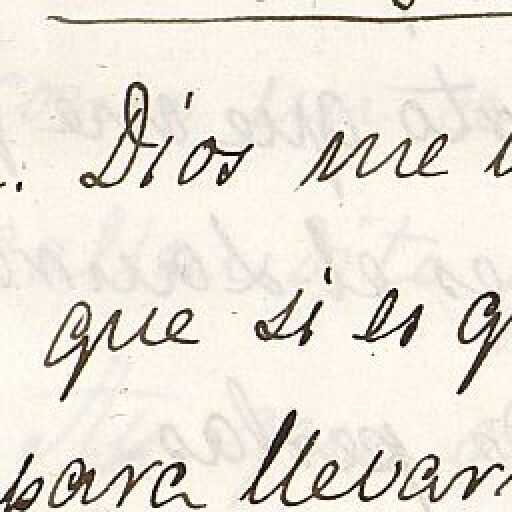 . Dios me
que si es q
para llevar